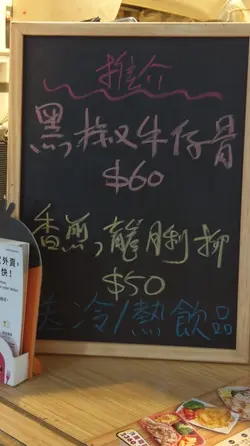 推介
黑椒牛仔骨
$60
香煎龍脷柳
$50
送冷/熱飲品
外賣,
快!